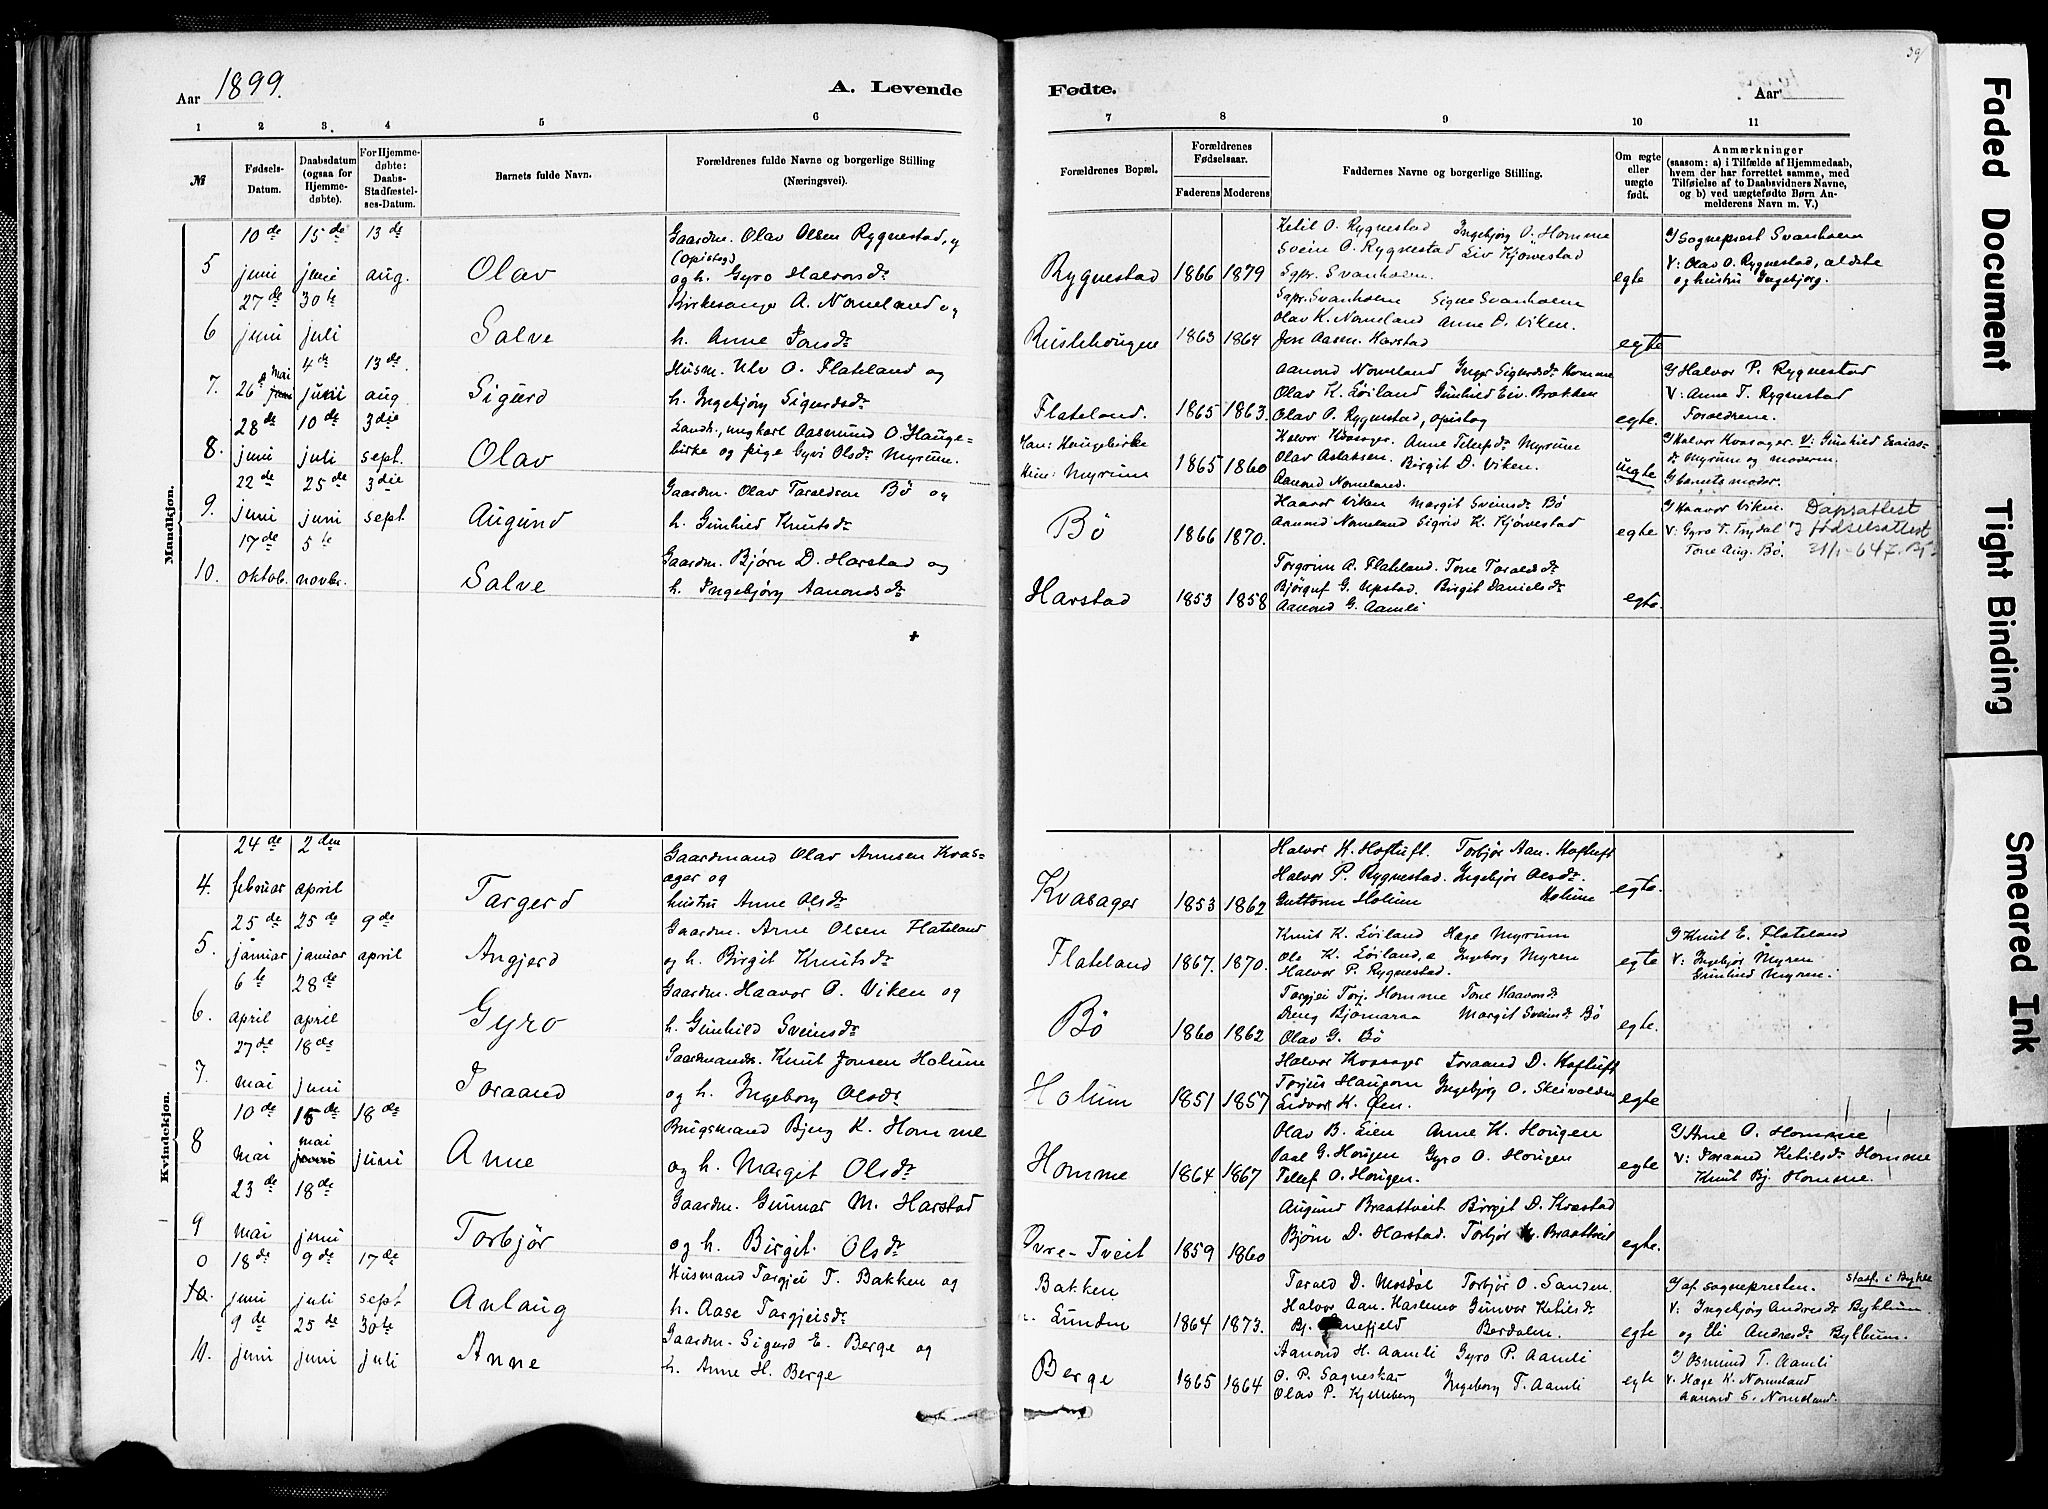 39
Aar 1899.
A. Levende
Fødte.
Aar
1 2 3. 4 5 6
7 8 9 10 11
№
Fødsels-Datum.
Daabsdatum (ogsaa for Hjemme-døbte).
For Hjemme-døbte: Daabs-Stadfæstel-ses-Datum.
Barnets fulde Navn.
Forældrenes fulde Navne og borgerlige Stilling (Næringsvei).
Forældrenes Bopæl.
Forældrenes Fødselsaar.
Faderens Moderens
Faddernes Navne og borgerlige Stilling.
Om ægte eller uægte født.
Anmærkninger
(saasom: a) i Tilfælde af Hjemmedaab, hvem der har forrettet samme, med Tilføielse af to Daabsvidners Navne, og b) ved uægtefødte Børn An-melderens Navn m. V.)
Mandkjøn.
5 10de juni 15de juni 13de aug. Olav
Gaardm. Olav Olsen Rygnestad, y
(opistog)
og h. Gyro Halvorsdr
Rygnestad 1866 1879
Ketil O. Rygnestad Ingebjørg O. Homme
Svein O. Rygnestad Liv Kjørvestad
Sgpr. Svanholm.
egte
Sogneprest Svanholm
V: Olav O. Rygnestad, aldste
og hustru Ingebjørg.
6 27de juni 30te juli Salve
Kirkesanger A. Nomeland og
h. Anne Jonsdr
1863 1864
Sgpr. Svanholm Signe Svanholm
Olav K. Nomeland Anne D. Viken.
Jon Aasen Harstad
egte
7. 26 mai 4de juni 13de aug Sigurd
Husm. Ulv O. Flateland og
h. Ingebjørg Sigurdsdr
Flateland. 1865 1863.
Aanond Nomeland Inger Sigurdsdr Homme
Olav K. Løiland Gunhild Eiv. Brokken
Olav O. Rygnestad, opistog
egte.
Halvor P. Rygnestad
V: Anne T. Rygnestad
Foraldrene.
8. 28de juni 10de juli 3die sept. Olav
Landh., ungkarl Aasmund O. Hauge-
birke og pige Gyvi Olsdr Myrum.
Han: Haugebirke
Hun: Myrum 1865 1860
Halvor Kvasager. Anne Tellefsdr Myrum
Olav Aslaksen. Birgit D. Viken.
Aanond Nomeland.
uegte
Halvor Kvasager V: Gunhild Esaias-
dr Myrum og moderen
G barnets moder.
9. 22de juni 25de juni 3die sept. Augund
Gaardm. Olav Taraldsen Bø og
h. Gunhild Knutsdr
Bö 1866 1870.
Haavor Viken Margit Sveinsdr Bø
Aanond Nomeland Sigrid K. Kjørvestad
egte
Haavor Viken.
V: Gyro T. Trydal
Tone Aug. Bø.
Dåpsattest
fødselsattest
10. 17de oktob. 5te novbr. Salve
Gaardm. Bjørn D. Harstad og
h. Ingebjørg Aanondsdr
Harstad 1853 1858
Torgrim A. Flateland. Tone Taraldsdr
Bjørguf G. Upstad. Birgit Danielsdr
Aanond G. Aamli
egte.
Kvindekjøn.
4. 24de februar 2den april Targerd
Gaardmand Olav Arnesen Kvas-
ager og
hustru Anne Olsdr
Kvasager 1853 1862
Halvor K. Hoftuft. Torbjør Aan. Hoftuft
Halvor P. Rygnestad. Ingebjør Olsdr.
Guttorm Holum Holum
egte.
5. 25de januar 25de januar 9de april Angjerd
Gaardm. Arne Olsen Flateland
og h. Birgit Knutsdr
Flateland 1867. 1870.
Knut K. Løiland Hage Myrum
Ols K. Løiland, Ingeborg Myren
Halvor P. Rygnestad.
egte
Knut E. Flateland
V: Ingebjør Myren
Gunhild Myren.
6. 6te april 28de april Gyro
Gaardm. Haavor O. Viken og
h. Gunhild Sveinsdr
Bö 1860 1862
Targjei Torj. Homme Tone Haavorsdr
Dreng Bjørnaraa Margit Sveinsdr Bø
Olav G. Bø
egte.
7. 27de mai 18de juni Toraand
Gaardmands. Knut Jonsen Holum
og h. Ingeborg Olsdr
Holum 1851 1857
Halvor Kvasager Toraand D. Hoftuft
Torjus Haugom Ingebjørg O. Skeivolden
Eidvor K. Øen.
egte
8 10de mai 15de mai 18de juni Anne
Brugsmand Bjug K. Homme
og h. Margit Olsdr
Homme 1864 1867
Olav B. Lien Anne K. Hougen
Paal G. Hougen Gyro O. Hougen
Tellef O. Hougen.
egte
Arne O. Homme
V: Toraand Ketilsdr Homme
Knut Bj. Homme.
9 23de mai 18de juni Torbjør
Gaardm. Gunnar M. Harstad
og h. Birgit Olsdr
Øvre-Tveit 1859 1860
Augund Braattveit Birgit D. Kvastad
Bjørn D. Harstad. Torbjør Braattveit
egte.
10. 18de juni 9de juli 17de sept Anlaug
Husmand Targjei T. Bakken og
h. Aase Targjeisdr
Bakken
Lunden 1864 1873.
Tarald D. Mosdøl Torbjør O. Sanden
Halvor Aan. Haslemo Gunvor Ketilsdr
Bj. Berdalen.
egte
af sognepresten. stadf. i Bykle
V: Ingebjørg Andresdr Byklum
og Eli Andresdr Byklum.
11. 9de juni 25de juni 30te juli Anne
Gaardm. Sigurd E. Berge og
h. Anne H. Berge
Berge 1865 1864
Aanond H. Aamli Gyro P. Aamli
O. P. Sagneskar Ingeborg T. Aamli
Olav P. Kylleberg
egte
Osmund T. Aamli
V. Hage K. Nomeland
Aanond S. Nomeland.
Faded Document
Tight Binding
Smeared Ink